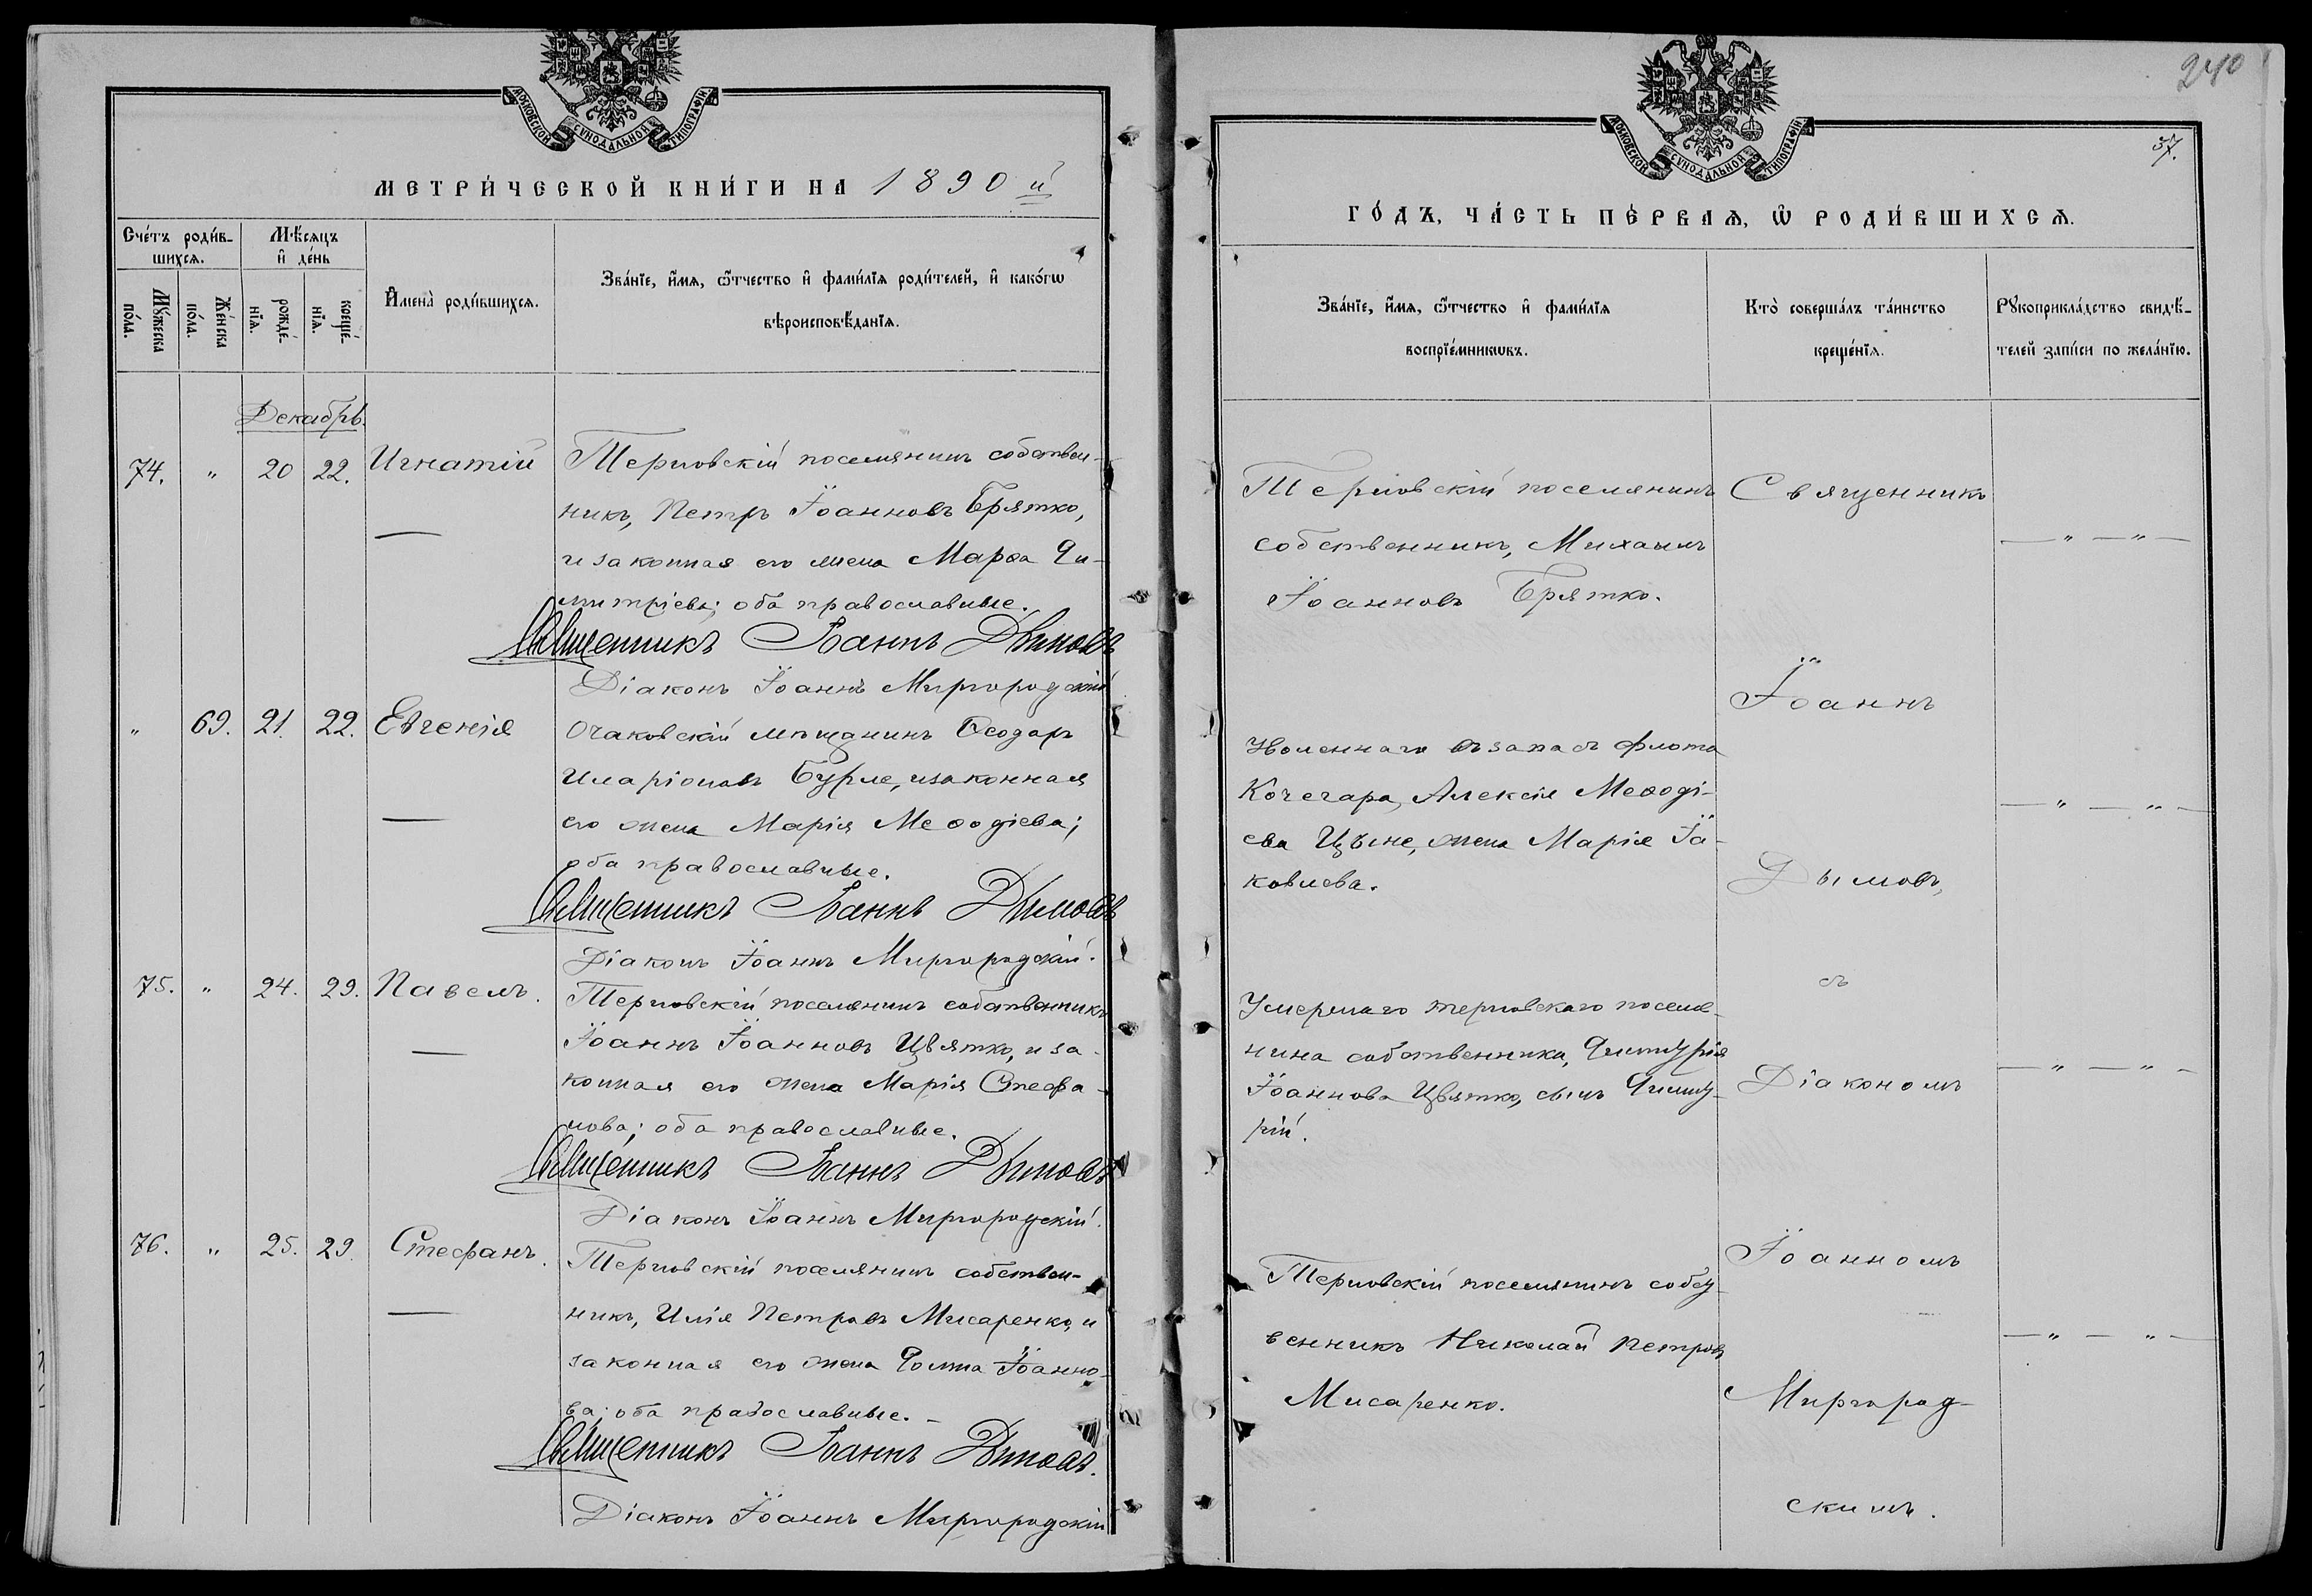 240
37.
МОСКОВСКОЙ СѴНОДАЛЬНОЙ ТИПОГРАФІИ
МЕТРИ́ЧЕСКОЙ КНИ́ГИ НА 1890 й
Сче́тъ роди́в-
шихсѧ.
Мꙋ́жеска
по́ла.
Же́нска
по́ла.
Мѣ́сѧцъ
и҆ де́нь
рожде́-
нїѧ.
креще́-
нїѧ.
И҆мена̀ роди́вшихсѧ.
Зва́нїе, и҆́мѧ, ѻ҆́тчество и҆ фами́лїѧ роди́телей, и҆ како́гѡ
вѣроисповѣ́данїѧ.
Декабрь.
74. " 20 22. Игнатій
Терновскій поселянинъ собствен-
никъ, Петръ Іоанновъ Брятко,
и законная его жена Марѳа Ди-
митріева; оба православные.
Священникъ Іоаннъ Дымовъ
Діаконъ Іоаннъ Миргородскій
" 69. 21. 22. Евгенія
Очаковскій мѣщанинъ Ѳеодоръ
Иларіоновъ Бурле, и законная
его жена Марія Меѳодіева;
оба православные.
Священникъ Іоаннъ Дымовъ
Діаконъ Іоаннъ Миргородскій.
75. " 24. 29. Павелъ.
Терновскій поселянинъ собственникъ
Іоаннъ Іоанновъ Цвятко, и за-
конная его жена Марія Стефа-
нова; оба православные.
Священникъ Іоаннъ Дымовъ
Діаконъ Іоаннъ Миргородскій.
76. " 25. 29. Стефанъ.
Терновскій поселянинъ собствен-
никъ, Илія Петровъ Мисаренко, и
законная его жена Домна Іоанно-
ва; оба православные. -
Священникъ Іоаннъ Дымовъ.
Діаконъ Іоаннъ Миргородскій
МОСКОВСКОЙ СѴНОДАЛЬНОЙ ТИПОГРАФІИ
ГО́ДЪ, ЧА́СТЬ ПЕ́РВАѦ, Ѽ РОДИ́ВШИХСѦ.
Зва́нїе, и҆́мѧ, ѻ҆́тчество и҆ фами́лїѧ
воспрїе́мникѡвъ.
Кто̀ соверша́лъ та́инство
креще́нїѧ.
Рꙋкоприкла́дство свидѣ́-
телей за́писи по жела́нїю.
Терновскій поселянинъ
собственникъ, Михаилъ
Іоанновъ Брятко.
— " — " —
Уволеннаго въ запасъ флота
Кочегара, Алексія Меѳоді-
ева Цъне, жена Марія Іа-
ковлева.
— " — " —
Умершаго терновскаго поселя-
нина собственника, Димитрія
Іоаннова Цвятко, сынъ Димит-
рій.
— " — " —
Терновскій поселянинъ собст-
венникъ Николай Петровъ
Мисаренко.
— " — " —
Священникъ
Іоаннъ
Дымовъ,
съ
Діакономъ
Іоанномъ
Миргород-
скимъ.